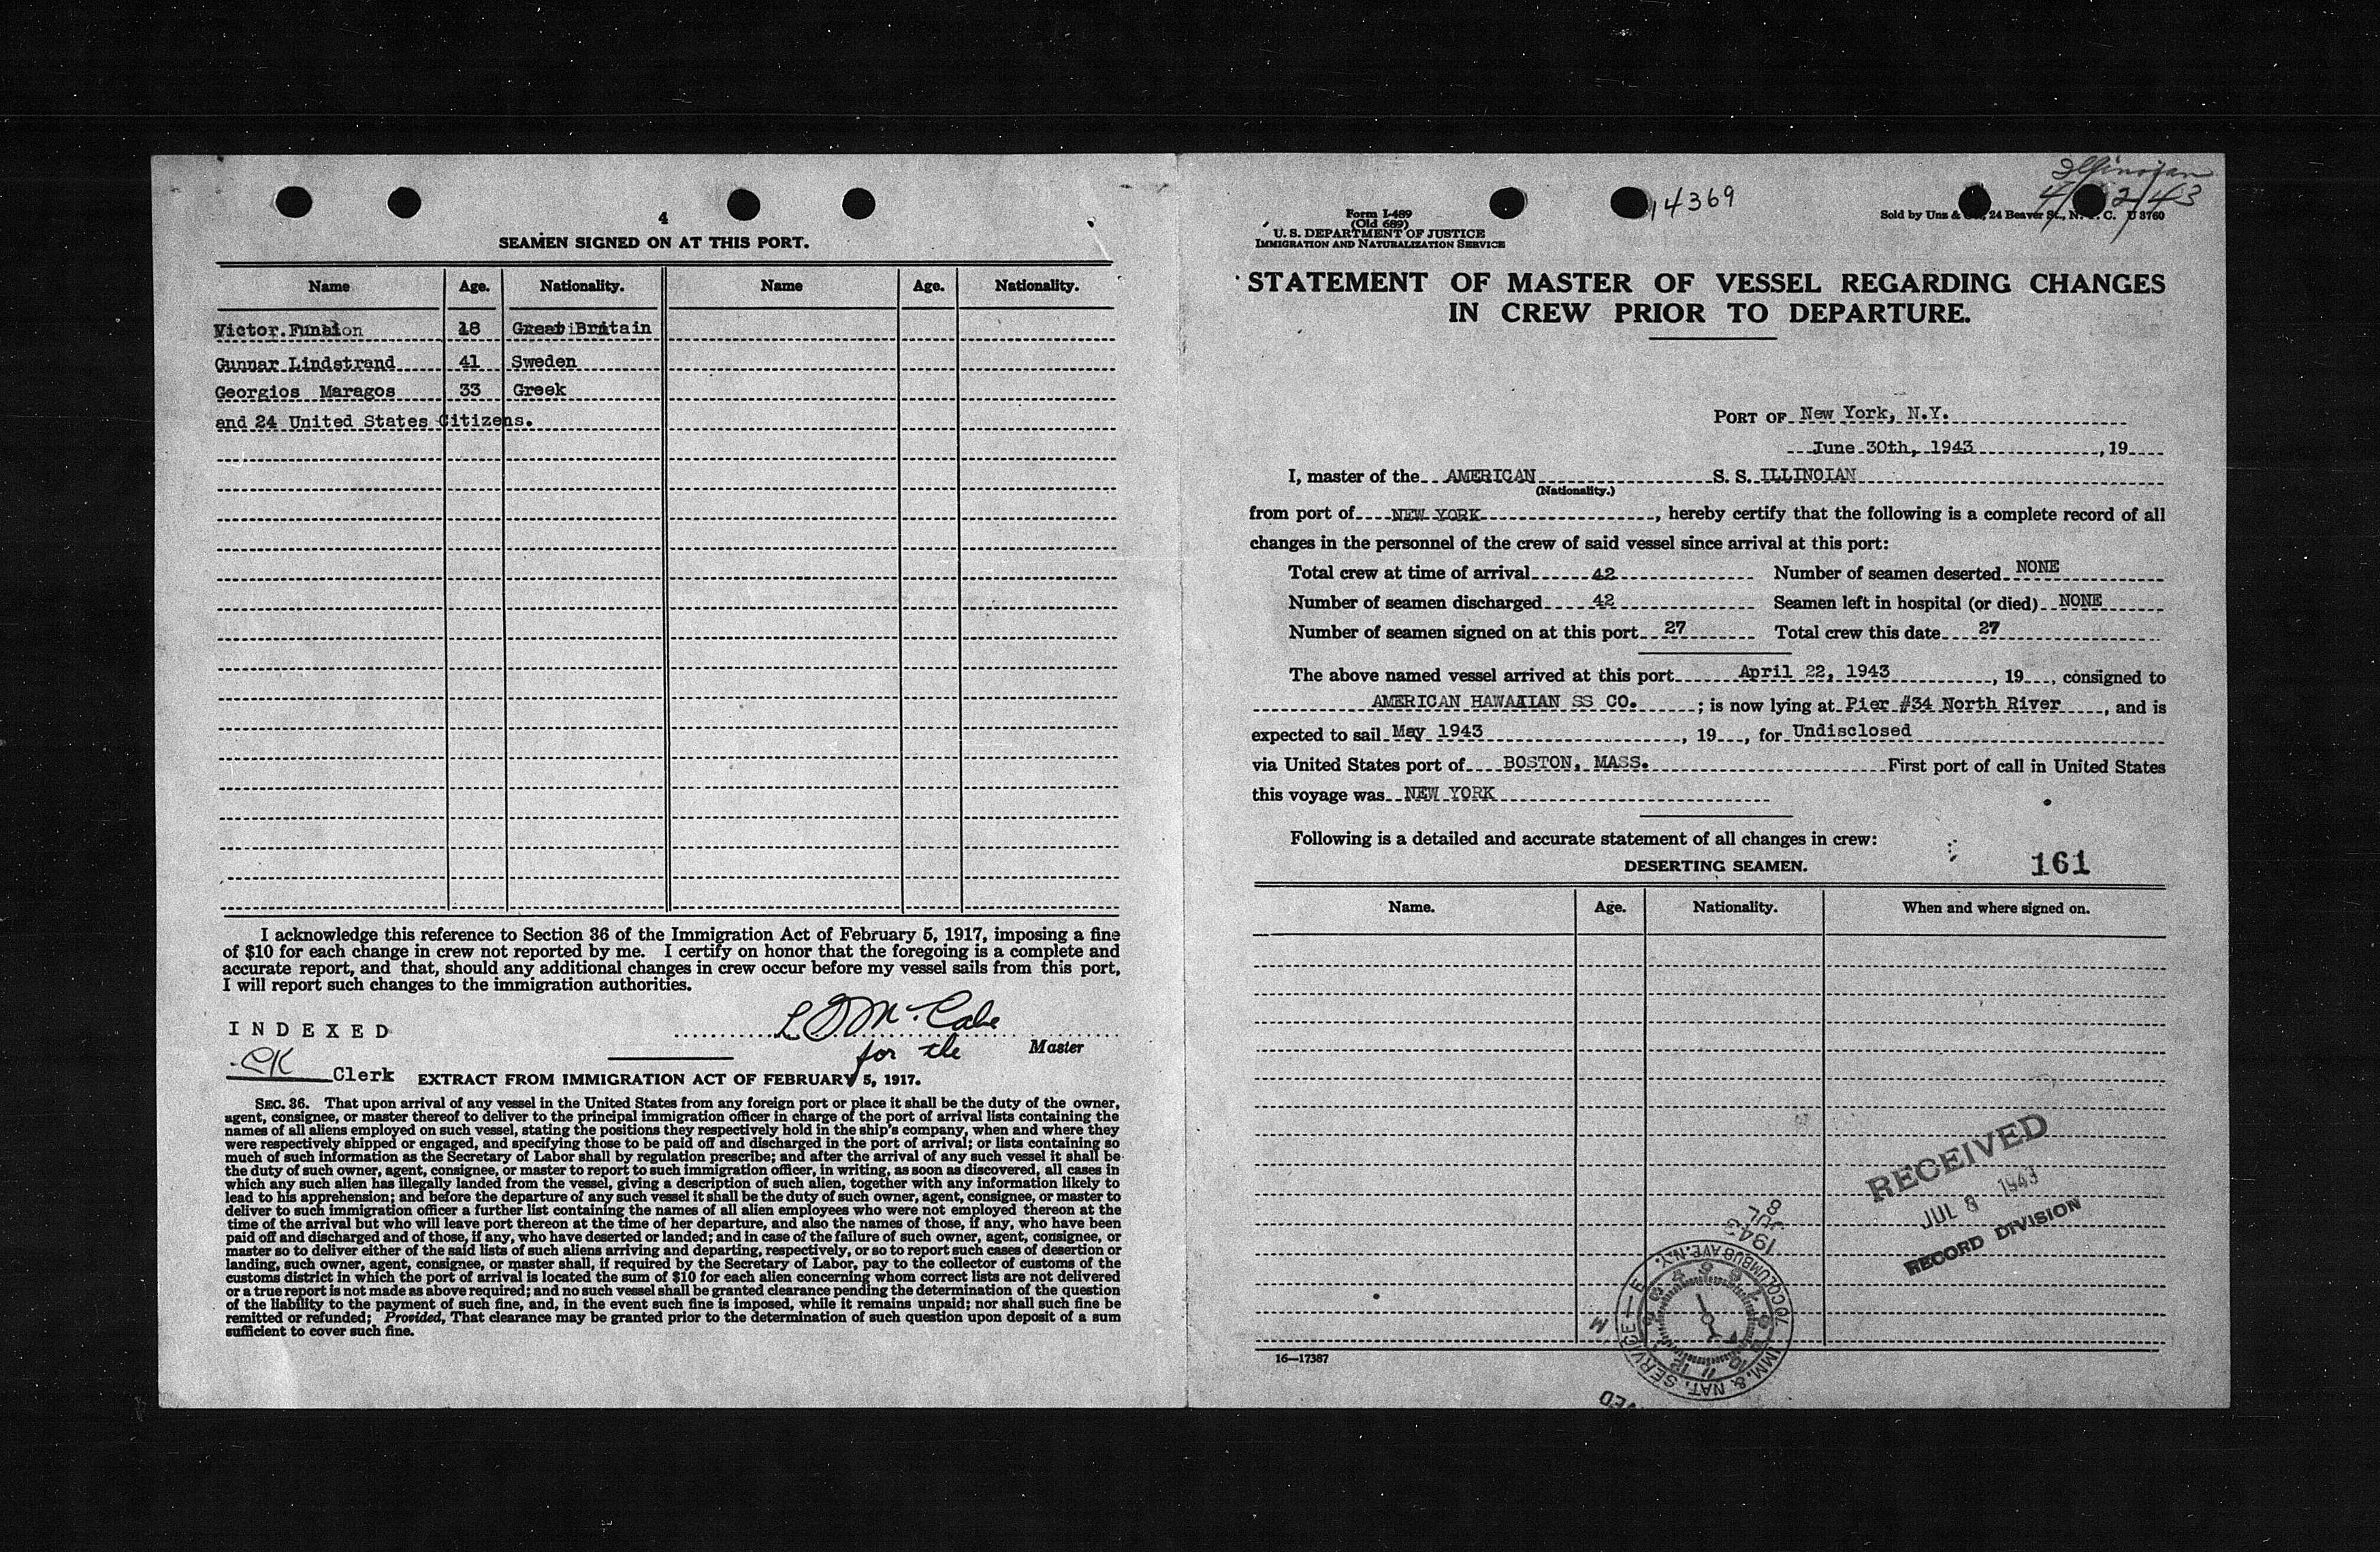 4
SEAMEN SIGNED ON AT THIS PORT.
Name Age. Nationality. Name Age. Nationality.
Victor 18 Great Britain
Gunnar Lindstrand 41 Sweden
Georgios Maragos 33 Greek
and 24 United States Citizens.
I acknowledge this reference to Section 36 of the Immigration Act of February 5, 1917, imposing a fine
of $10 for each change in crew not reported by me. I certify on honor that the foregoing is a complete and
accurate report, and that, should any additional changes in crew occur before my vessel sails from this port,
I will report such changes to the immigration authorities.
INDEXED
L McCabe
for the Master
CK Clerk
EXTRACT FROM IMMIGRATION ACT OF FEBRUARY 5, 1917.
SEC. 36. That upon arrival of any vessel in the United States from any foreign port or place it shall be the duty of the owner,
agent, consignee, or master thereof to deliver to the principal immigration officer in charge of the port of arrival lists containing the
names of all aliens employed on such vessel, stating the positions they respectively hold in the ship's company, when and where they
were respectively shipped or engaged, and specifying those to be paid off and discharged in the port of arrival; or lists containing so
much of such information as the Secretary of Labor shall by regulation prescribe; and after the arrival of any such vessel it shall be
the duty of such owner, agent, consignee, or master to report to such immigration officer, in writing, as soon as discovered, all cases in
which any such alien has illegally landed from the vessel, giving a description of such alien, together with any information likely to
lead to his apprehension; and before the departure of any such vessel it shall be the duty of such owner, agent, consignee, or master to
deliver to such immigration officer a further list containing the names of all alien employees who were not employed thereon at the
time of the arrival but who will leave port thereon at the time of her departure, and also the names of those, if any, who have been
paid off and discharged and of those, if any, who have deserted or landed; and in case of the failure of such owner, agent, consignee, or
master so to deliver either of the said lists of such aliens arriving and departing, respectively, or so to report such cases of desertion or
landing, such owner, agent, consignee, or master shall, if required by the Secretary of Labor, pay to the collector of customs of the
customs district in which the port of arrival is located the sum of $10 for each alien concerning whom correct lists are not delivered
or a true report is not made as above required; and no such vessel shall be granted clearance pending the determination of the question
of the liability to the payment of such fine, and, in the event such fine is imposed, while it remains unpaid; nor shall such fine be
remitted or refunded; Provided, That clearance may be granted prior to the determination of such question upon deposit of a sum
sufficient to cover such fine.
Illinoian
4/ 2/43
14369
Form I-489
(Old 689)
U. S. DEPARTMENT OF JUSTICE
IMMIGRATION AND NATURALIZATION SERVICE
Sold by Unz & 24 Beaver St., N. Y. C. U 3760
STATEMENT OF MASTER OF VESSEL REGARDING CHANGES
IN CREW PRIOR TO DEPARTURE.
PORT OF New York, N.Y.
June 30th, 1943, 19
I, master of the AMERICAN S. S. ILLINOIAN
(Nationality.)
from port of NEW YORK, hereby certify that the following is a complete record of all
changes in the personnel of the crew of said vessel since arrival at this port:
Total crew at time of arrival 42 Number of seamen deserted NONE
Number of seamen discharged 42 Seamen left in hospital (or died) NONE
Number of seamen signed on at this port 27 Total crew this date 27
The above named vessel arrived at this port April 22, 1943, 19, consigned to
AMERICAN HAWAIIAN SS CO.; is now lying at Pier #34 North River, and is
expected to sail May 1943, 19, for Undisclosed
via United States port of BOSTON, MASS. First port of call in United States
this voyage was NEW YORK
Following is a detailed and accurate statement of all changes in crew:
DESERTING SEAMEN.
161
Name. Age. Nationality. When and where signed on.
RECEIVED
JUL 8 1943
RECORD DIVISION
1943
JUL
8
IMM. & NAT. SERVICE
70 COLUMBUS AVE. N.Y.
M
16—17387